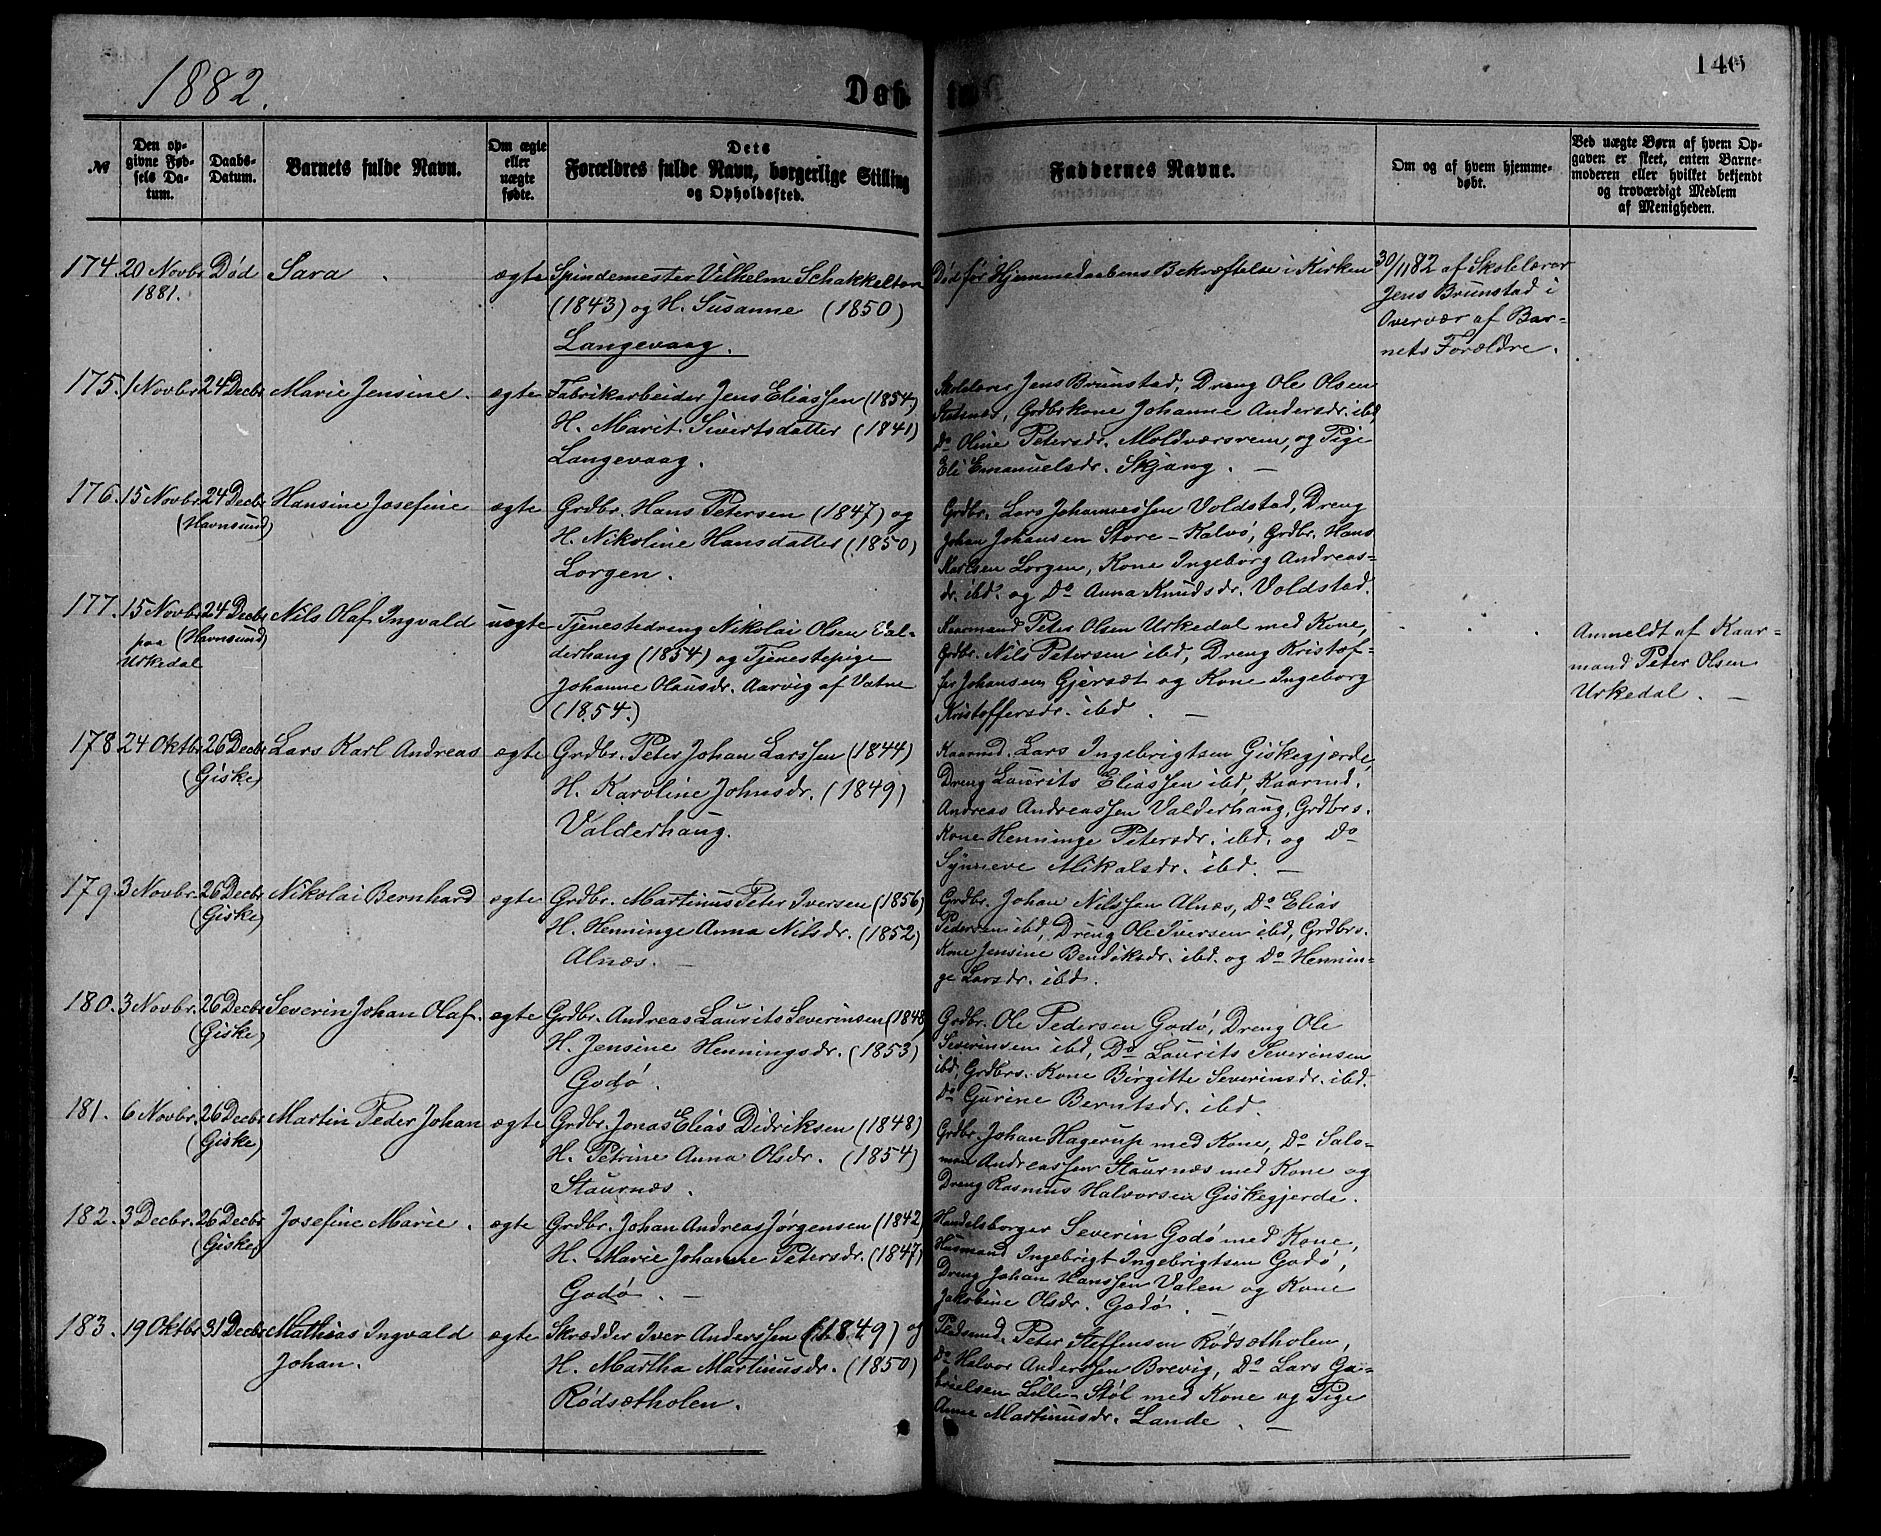 1882.
Døb
te
146
№
Den op-
givne Fød-
sels Da-
tum.
Daabs-
Datum.
Barnets fulde Navn.
Om ægte
eller
uægte
fødte.
Dets
Forældres fulde Navn, borgerlige Stilling
og Opholdssted.
Faddernes Navne.
Om og af hvem hjemme-
døbt.
Ved uægte Børn af hvem Op-
gaven er skeet, enten Barne-
moderen eller hvilket bekjendt
og troværdigt Medlem
af Menigheden.
174. 20 Novbr. Død Sara ægte Spindemester Vilhelm Schakkelton Død før Hjemmedaabens Bekræftelse i Kirken 30/11 82 af Skolelærer
1881. (1843) og H. Susanne (1850) Jens Brunstad i
Langevaag. Overvær af Bar-
nets Forældre.
175. 1 Novbr. 24 Decbr. Marie Jensine. ægte Fabrikarbeider Jens Eliassen (1854) Skolelærer Jens Brunstad, Dreng Ole Olsen
H. Marit Sivertsdatter (1841) Grdbrkone Johanne Andersdr. ibd,
Langevaag. Do Oline Petersdr. Moldværsrem, og Pige
Eli Emanuelsdr. Skjong. —
176. 15 Novbr. 24 Decbr. Hansine Josefine ægte Grdbr. Hans Petersen (1847) og Grdbr. Lars Johannessen Voldstad, Dreng
(Havnsund) H. Nikoline Hansdatter (1850) Johan Johansen Store-Kalvø, Grdbr. Hans
Lorgen. Karlsen Lorgen, Kone Ingeborg Andreas-
dr. ibd. og Do Anna Knudsdr. Voldstad.
177. 15 Novbr. 24 Decbr. Nils Olaf Ingvald uægte Tjenestedreng Nikolai Olsen Val- Kaarmand Peter Olsen Urkedal med Kone, Anmeldt af Kaar-
paa (Havnsund) derhaug (1854) og Tjenestepige Grdbr. Nils Petersen ibd, Dreng Kristof- mand Peter Olsen
Urkedal Johanne Olausdr. Aarvig af Vatne fer Johansen Gjersæt og Kone Ingeborg Urkedal. —
(1854.) Kristoffersdr. ibd. —
178. 24 Oktbr. 26 Decbr. Lars Karl Andreas ægte Grdbr. Peter Johan Larssen (1844) Kaarmd. Lars Ingebrigtsen Giskegjærde,
(Giske) H. Karoline Johnsdr. (1849) Dreng Laurits Eliassen ibd, Kaarmd.
Valderhaug. Andreas Andreassen Valderhaug, Grdbrs.
Kone Henninge Petersdr. ibd. og Do
Synneve Mikalsdr. ibd. —
179. 3 Novbr. 26 Decbr. Nikolai Bernhard ægte Grdbr. Martinus Peter Iversen (1856) Grdbr. Johan Nilssen Alnæs, Do Elias
(Giske) H. Henninge Anna Nilsdr. (1852) Pedersen ibd, Dreng Ole Iversen ibd, Grdbrs.
Alnæs. — Kone Jensine Bendiksdr. ibd. og Do Hennin-
ge Larsdr. ibd.
180. 3 Novbr. 26 Decbr. Severin Johan Olaf. ægte Grdbr. Andreas Laurits Severinsen (1848) Grdbr. Ole Pedersen Godø, Dreng Ole
(Giske) H. Jensine Henningsdr. (1853) Severinsen ibd, Do Laurits Severinsen
Godø. ibd, Grdbrs. Kone Birgitte Severinsdr. ibd.
Do Gurine Berntsdr. ibd.
181. 6 Novbr. 26 Decbr. Martin Peder Johan ægte Grdbr. Jonas Elias Didriksen (1848) Grdbr. Johan Hagerup med Kone, Do Salo-
(Giske) H. Petrine Anna Olsdr. (1854) mon Andreassen Staurnæs med Kone og
Staurnæs. Dreng Rasmus Halvorsen Giskegjerde.
182. 3 Decbr. 26 Decbr. Josefine Marie. ægte Grdbr. Johan Andreas Jørgensen (1842) Handelsborger Severin Godø med Kone,
(Giske) H. Marie Johanne Petersdr. (1847) Husmand Ingebrigt Ingebrigtsen Godø,
Godø. — Dreng Johan Hanssen Valen og Kone
Jakobine Olsdr. Godø. —
183. 19 Oktbr. 31 Decbr. Mathias Ingvald ægte Skrædder Iver Anderssen (1849) og Pladsmd. Peter Steffensen Rødsætholen,
Johan. H. Martha Martinusdr. (1850) Do Halvor Anderssen Brevig, Do Lars Ga-
Rødsætholen. brielsen Lille-Støl med Kone og Pige
Anne Martinusdr. Lande. —